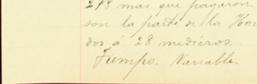 298 mas que pagaron
son la parte de la Hacien
dos á 28 medieros.
Tiempo. Variable.